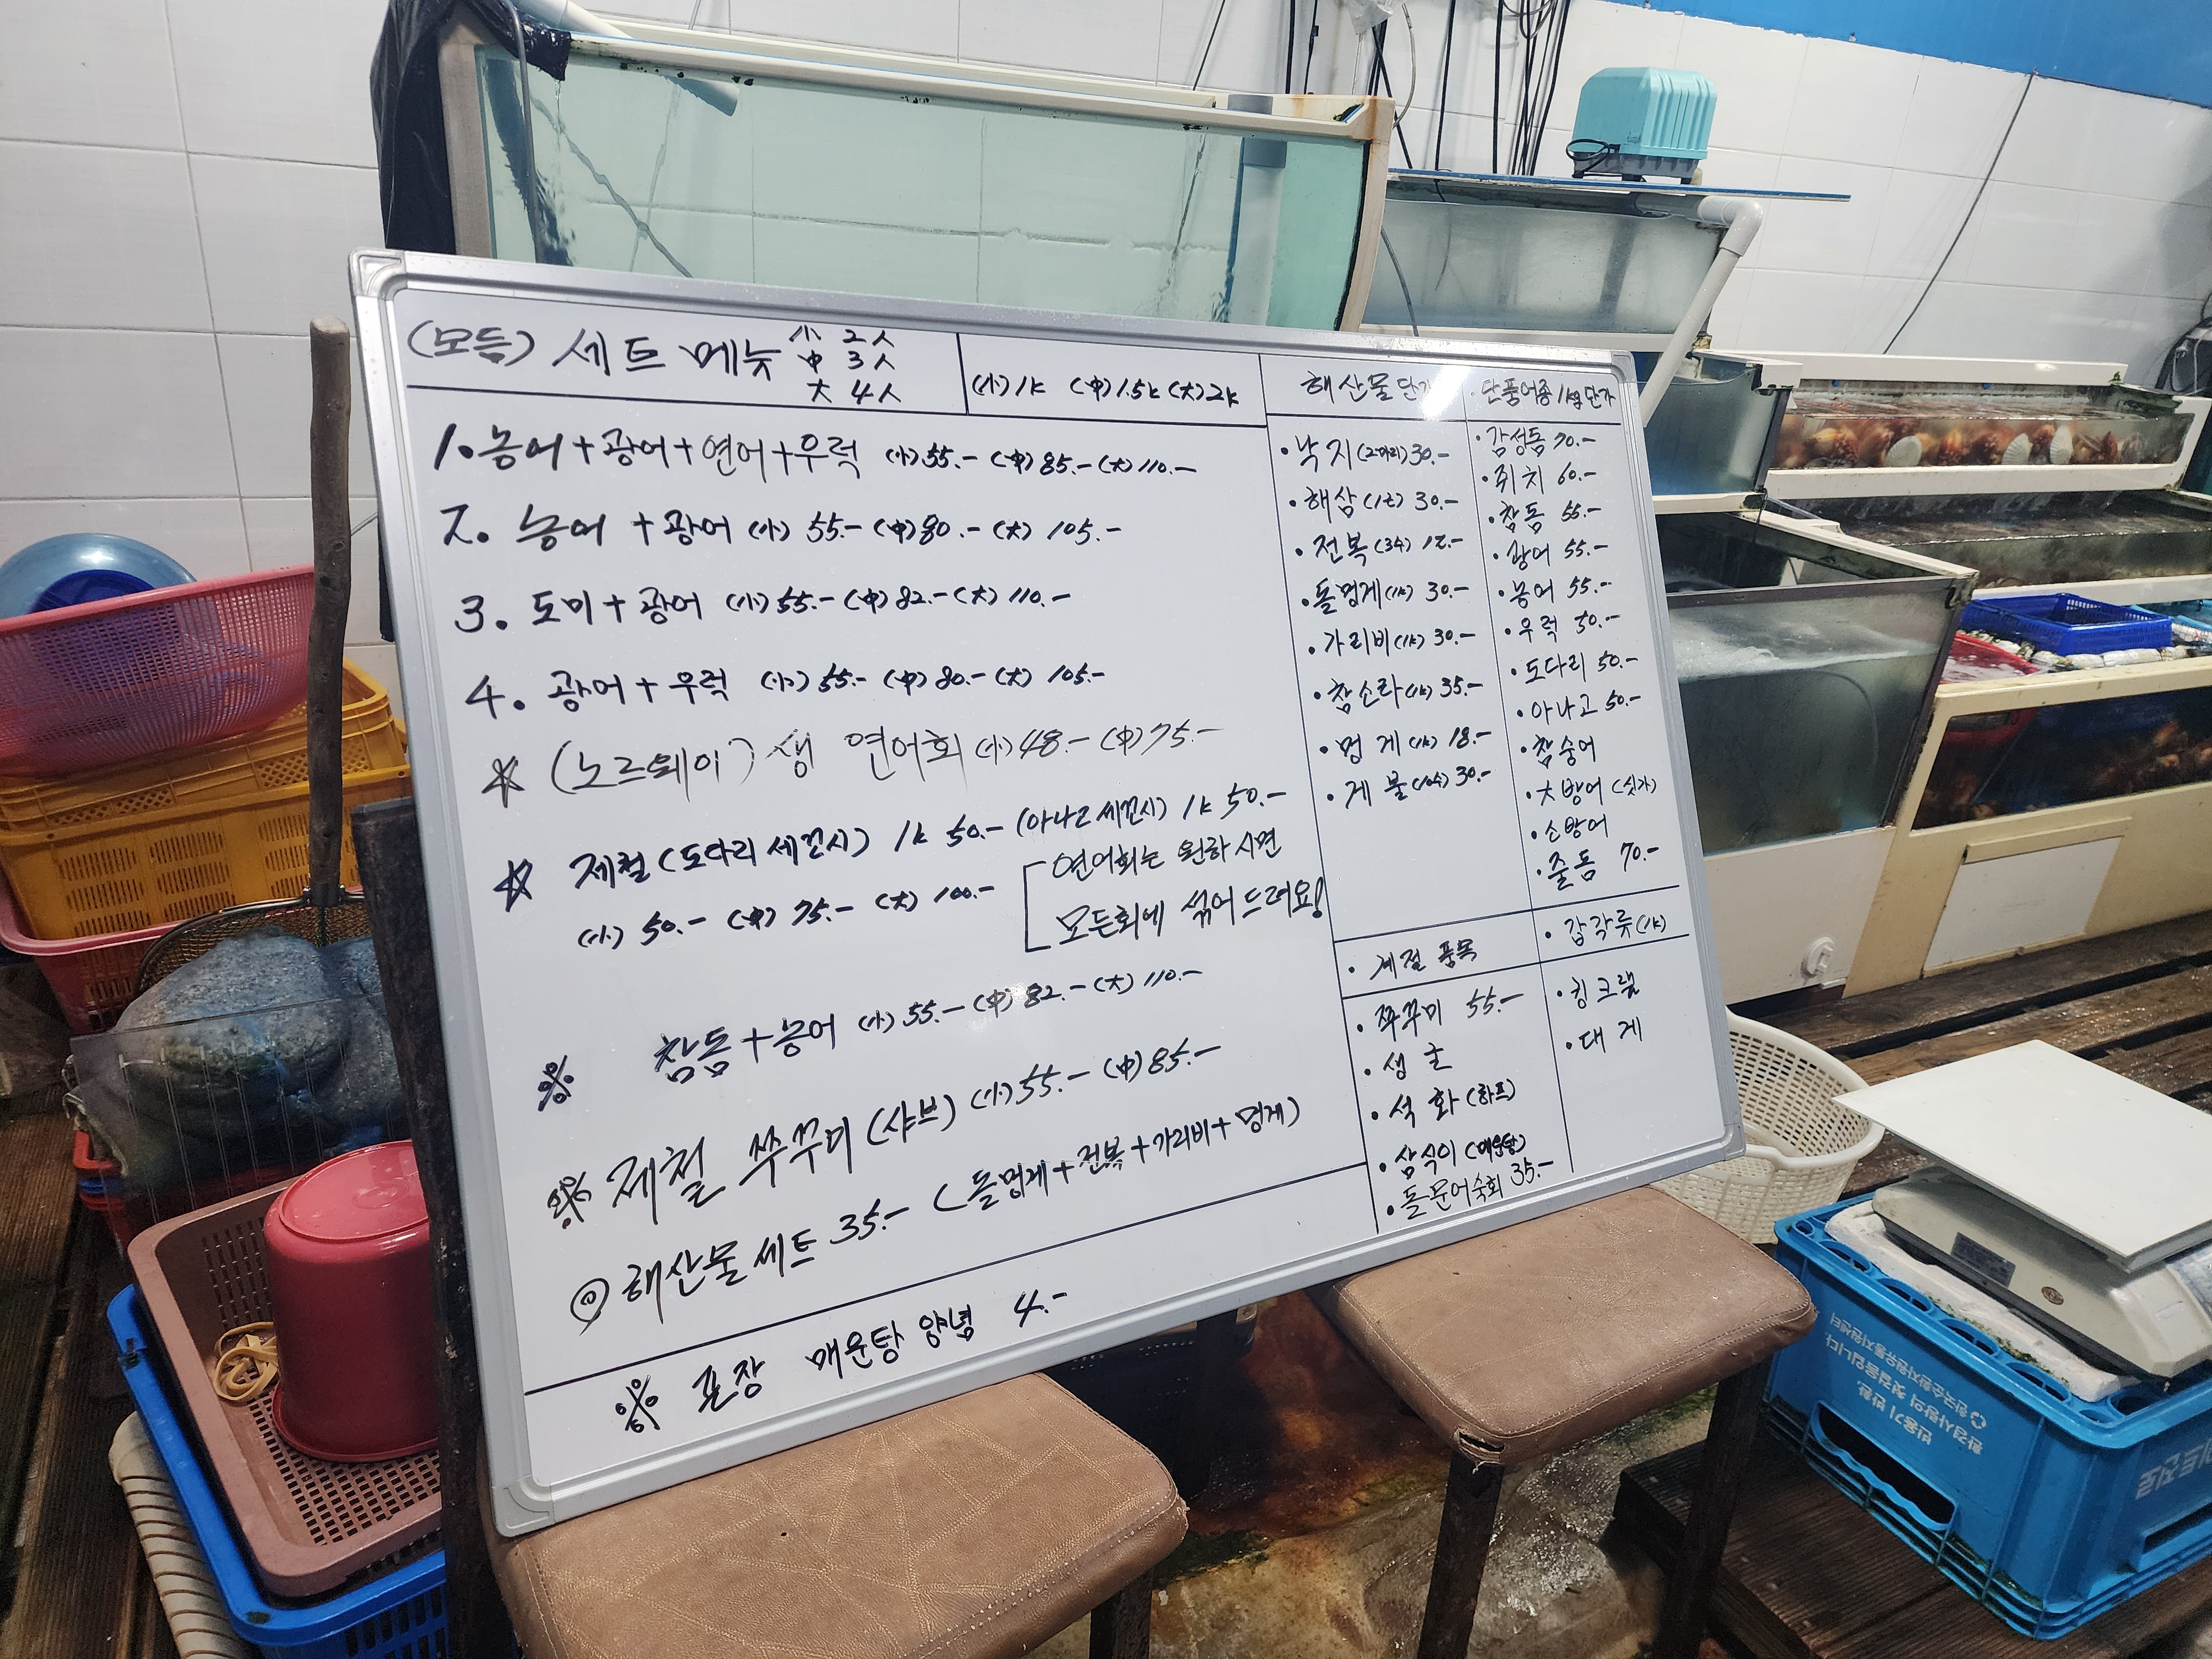 (모듬) 세트 메뉴
小 2人
中 3人
大 4人
(小)1k (中)1.5k (大)2k
1. 농어+광어+연어+우럭 (小)55.- (中)85.- (大)110.-
2. 농어 + 광어 (小) 55.- (中)80.- (大) 105.-
3. 도미+광어 (小)55.- (中)82.- (大)110.-
4. 광어+우럭 (小)55.- (中)80.- (大) 105.-
☆ (노르웨이) 생 연어회 (小)48.- (中)75.-
☆ 제철(도다리 세꼬시) 1k 50.- (아나고 세꼬시) 1k 50.-
(小) 50.- (中) 75.- (大) 100.-
연어회는 원하시면
모든회에 섞어 드려요!
※ 참돔+농어 (小)55.- (中)82.- (大)110.-
※ 제철 쭈꾸미(샤브) (小)55.- (中)85.-
◎ 해산물 세트 35.- (돌멍게+전복+가리비+멍게)
※ 포장 매운탕 양념 4.-
해산물 단가
·낙지(2마리)30.-
·해삼 30.-
·전복 12.-
·돌멍게(1k) 30.-
·가리비(1k) 30.-
·참소라(1k) 35.-
·멍게(1k) 18.-
·게불 30.-
·단품어종 1kg단가
·감성돔 70.-
·쥐치 60.-
·참돔 55.-
·광어 55.-
·농어 55.-
·우럭 50.-
·도다리 50.-
·아나고 50.-
·참숭어
·大방어 (싯가)
·소방어
·줄돔 70.-
·계절 품목
·쭈꾸미 55.-
·생굴
·석화(하프)
·삼식이 (매운탕)
·돌문어숙회 35.-
·갑각류(1k)
·킹크랩
·대게